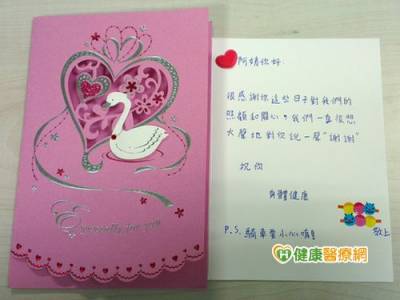 Especially for you
阿姨你好：
很感謝你這些日子對我們的
照顧和關心，我們一直很想
大聲地對你說一聲“謝謝”
祝你
身體健康
敬上
P.S. 騎車要小心唷！
健康醫療網